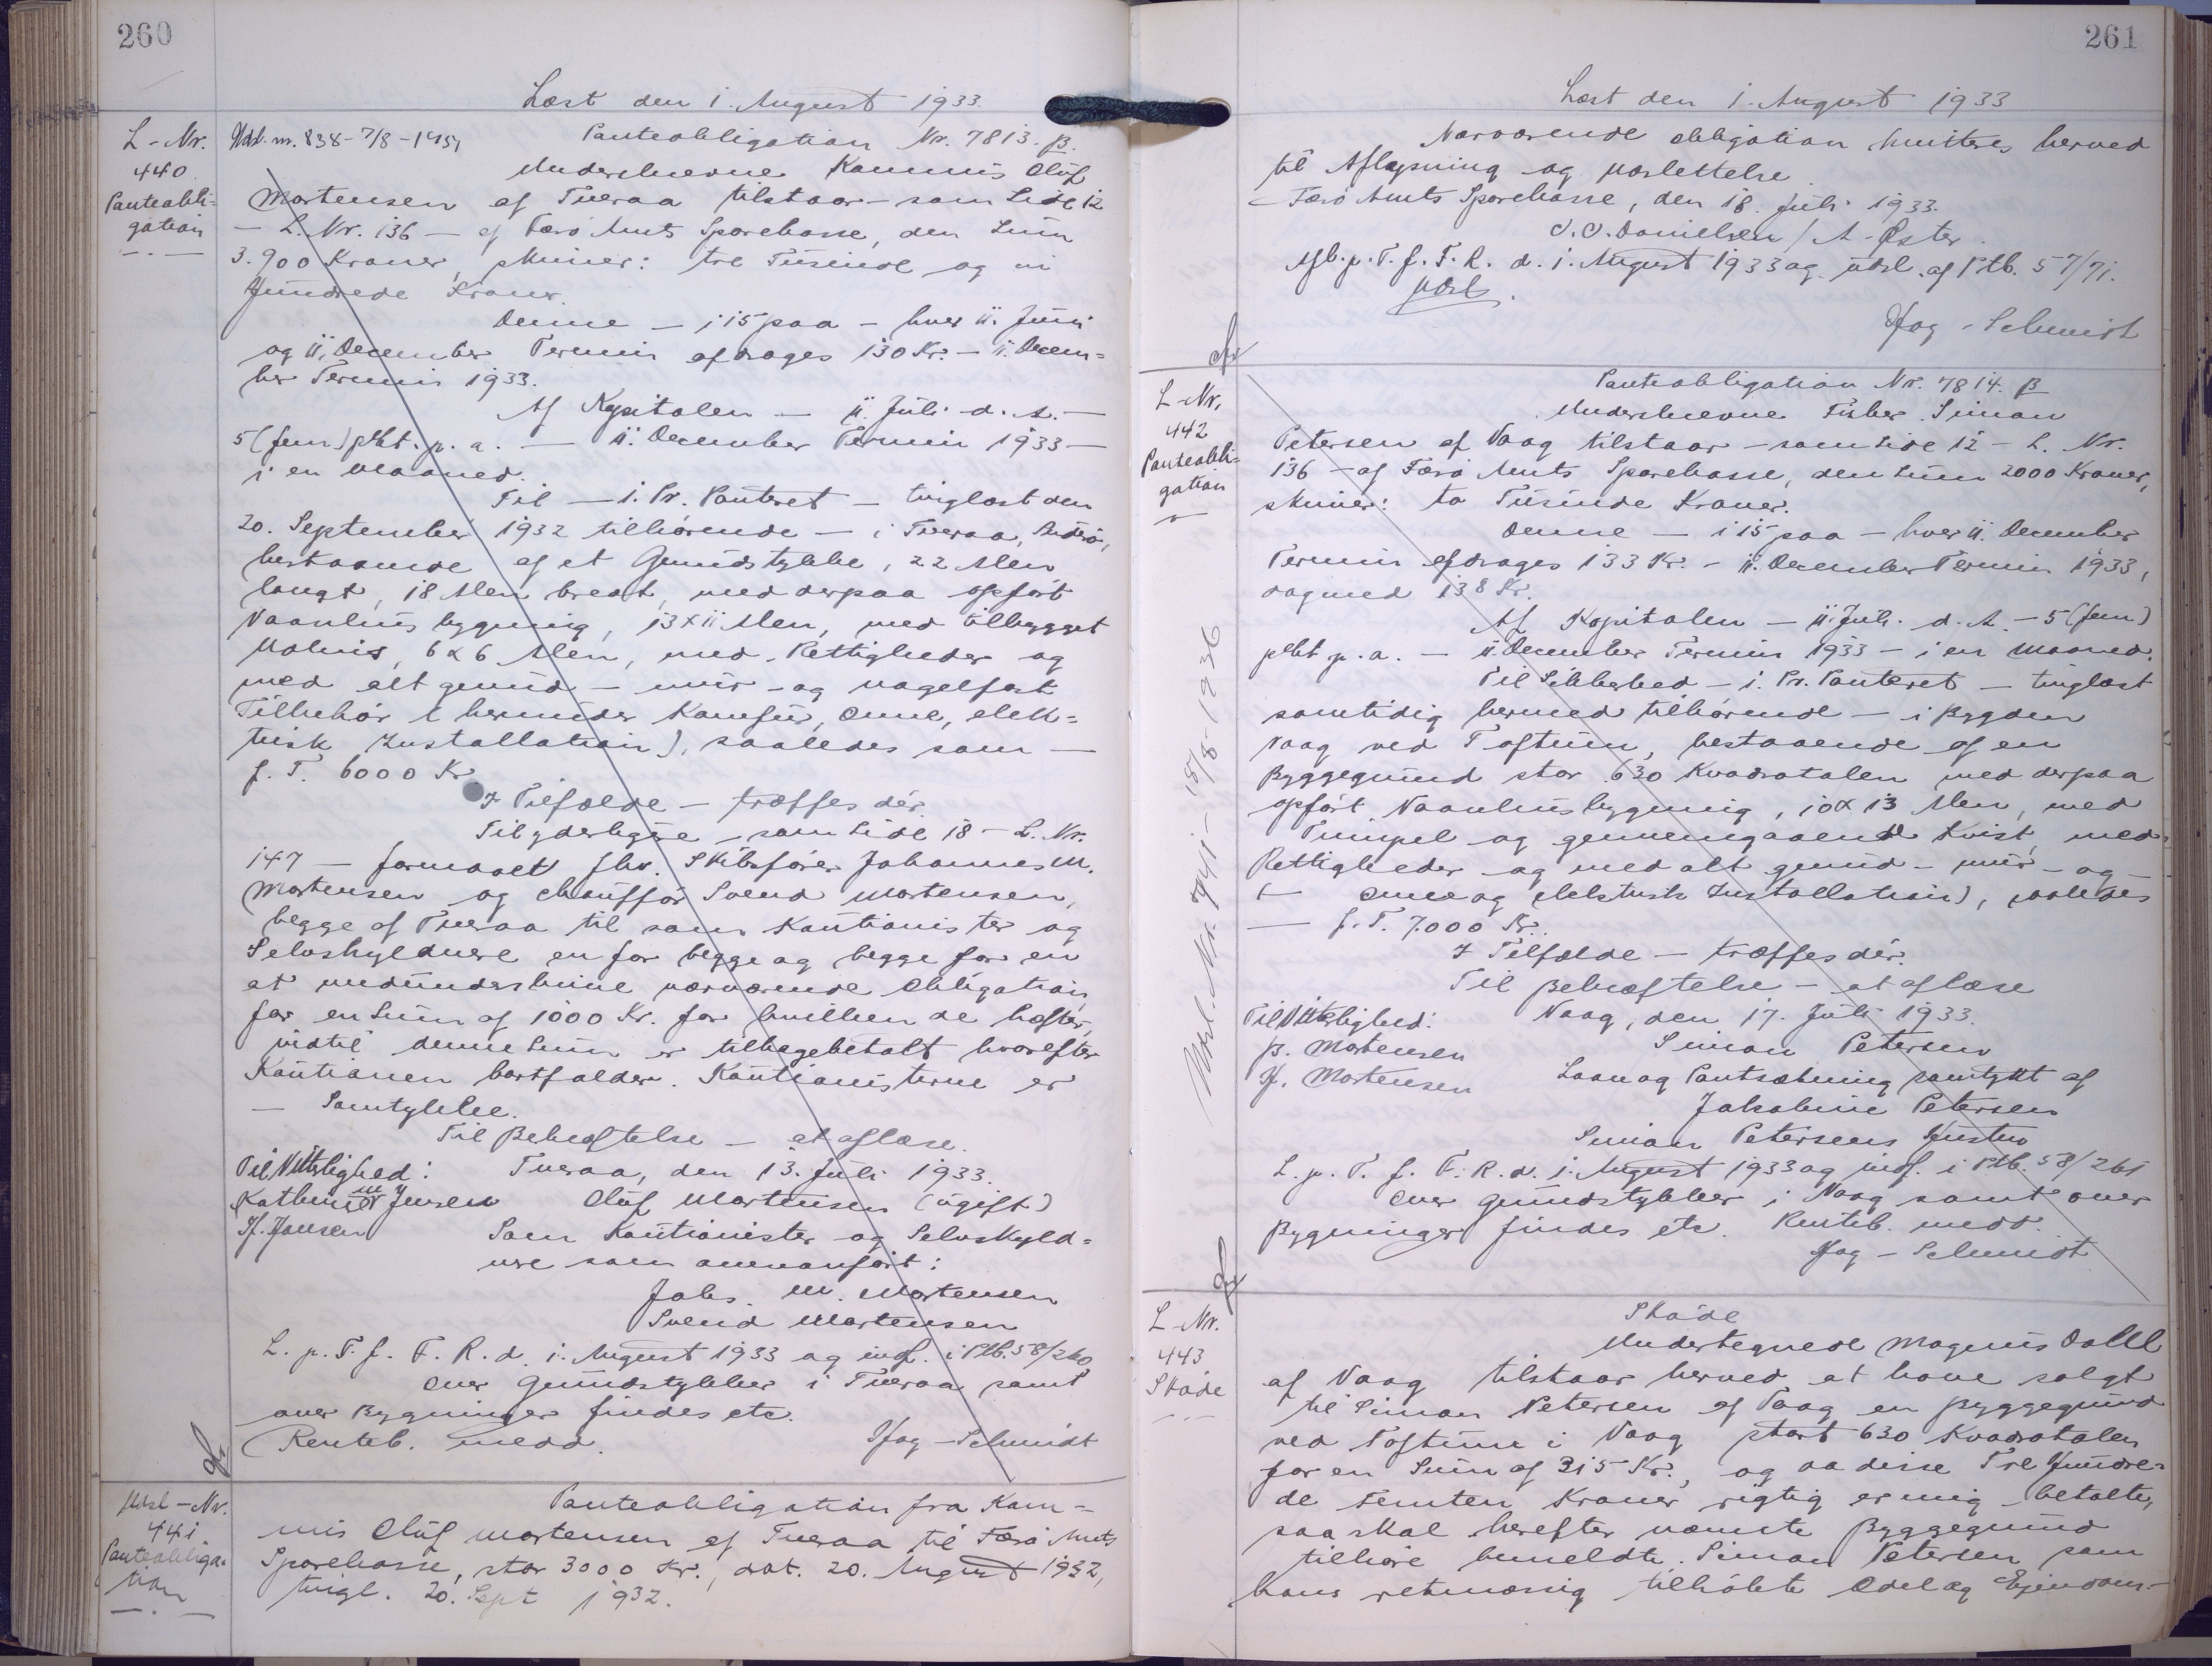 260
Læst den 1. August 1933.
L-Nr.
440
Panteobli-
gation
Udsl. nr. 838 - 7/8 - 1951
Panteobligation Nr. 7813. β.
Underskrevne Kommis Oluf
Mortensen af Tveraa tilstaar - som Side 12
- L. Nr. 136 - af Færø Amts Sparekasse, den Sum
3.900 Kroner, skriver: tre Tusinde og ni
Hundrede Kroner.
Denne - i 15 paa - hver 11. Juni
og 11. December Termin afdrages 130 Kr. - 11. Decem-
ber Termin 1933.
Af Kapitalen - 11. Juli d. A. -
5 (fem) pkt. p. a. - 11. December Termin 1933 -
i en Maaned.
Til - 1. Pr. Panteret - tinglæst den
20. September 1932 tilhørende - i Tveraa, Suderø,
bestaaende af et Grundstykke, 22 Alen
langt, 18 Alen bredt, med derpaa opført
Vaaningsbygning, 13 x 11 Alen, med tilbygget
Udhus, 6 x 6 Alen, med Rettigheder og
med alt grund- mur- og nagelfast
Tilbehør (herunder Komfur, Ovne, elek-
trisk Installation), saaledes som -
f. T. 6000 Kr.
I Tilfælde - træffes dér.
Til yderligere - som Side 18 - L. Nr.
147 - formaaet fhv. Skibsfører Johannes M.
Mortensen og Chauffør Svend Mortensen,
begge af Tveraa til som Kautionister og
Selvskyldnere en for begge og begge for en
at medunderskrive nærværende Obligation
for en Sum af 1000 Kr. for hvilken de hæfter,
indtil denne Sum er tilbagebetalt hvorefter
Kautionen bortfalder. Kautionisterne er
- Samtykke.
Til Bekræftelse - at aflæse.
Til Vitterlighed: Tveraa, den 13. Juli 1933.
Jensen Oluf Mortensen (ugift)
H. Jensen Som Kautionister og Selvskyld-
nere som ovenanført:
Johs. M. Mortensen
Svend Mortensen
L. p. T. f. F. R. d. 1. August 1933 og indf. i Ptb. 58/260
Over Grundstykker i Tveraa samt
over Bygninger findes etc.
Renteb. medd. Hag-Schmidt
Udsl-Nr.
441
Panteobliga-
tion
Panteobligation fra Kom-
mis Oluf Mortensen af Tveraa til Færø Amts
Sparekasse, stor 3000 Kr., dat. 20. August 1932,
tingl. 20. Sept 1932.
261
Læst den 1. August 1933
Nærværende Obligation kvitteres herved
til Aflysning og Udslettelse.
Færø Amts Sparekasse, den 18. Juli 1933.
Danielsen / A. Øster
Afl. p. T. f. F. R. d. 1. August 1933 og udsl. af Ptb. 57/71.
Udsl.
Hag-Schmidt
L-Nr.
442
Panteobli-
gation
Udsl. Nr. 741 - 15/8 - 1936
Panteobligation Nr. 7814. β
Underskrevne Fisker Simon
Petersen af Vaag tilstaar - som Side 12 - L. Nr.
136 - af Færø Amts Sparekasse, den Sum 2000 Kroner,
skriver: to Tusinde Kroner.
Denne - i 15 paa - hver 11. December
Termin afdrages 133 Kr. - 11. December Termin 1933,
dog med 138 Kr.
Af Kapitalen - 11. Juli d. A. - 5 (fem)
pkt. p. a. - 11. December Termin 1933 - i en Maaned.
Til Sikkerhed - 1. Pr. Panteret - tinglæst
samtidig hermed tilhørende - i Bygden
Vaag ved Toftum, bestaaende af en
Byggegrund stor 630 Kvadratalen med derpaa
opført Vaaningsbygning, 10 x 13 Alen, med
og gennemgaaende Kvist, med
Rettigheder og med alt grund- mur- og -
(- Ovne og elektrisk Installation), saaledes
- f. T. 7.000 Kr.
I Tilfælde - træffes dér.
Til Bekræftelse - at aflæse
Til Vitterlighed: Vaag, den 17. Juli 1933.
B. Mortensen Simon Petersen
H. Mortensen Laan og Pantsætning samtykt af
Jakobine Petersen
Simon Petersens Hustru
L. p. T. f. F. R. d. 1. August 1933 og indf. i Ptb. 58/261
Over Grundstykker i Vaag samt over
Bygninger findes etc. Renteb. medd.
Hag-Schmidt
L-Nr.
443
Skøde
Skøde
Undertegnede Magnus Dahl
af Vaag tilstaar herved at have solgt
til Simon Petersen af Vaag en Byggegrund
ved Toftum i Vaag stort 630 Kvadratalen
for en Sum af 315 Kr., og da disse Tre Hundre-
de Femten Kroner rigtig er mig betalte,
saa skal herefter nævnte Byggegrund
tilhøre bemeldte Simon Petersen som
hans retmæssig tilkøbte Odel og Ejendom.-